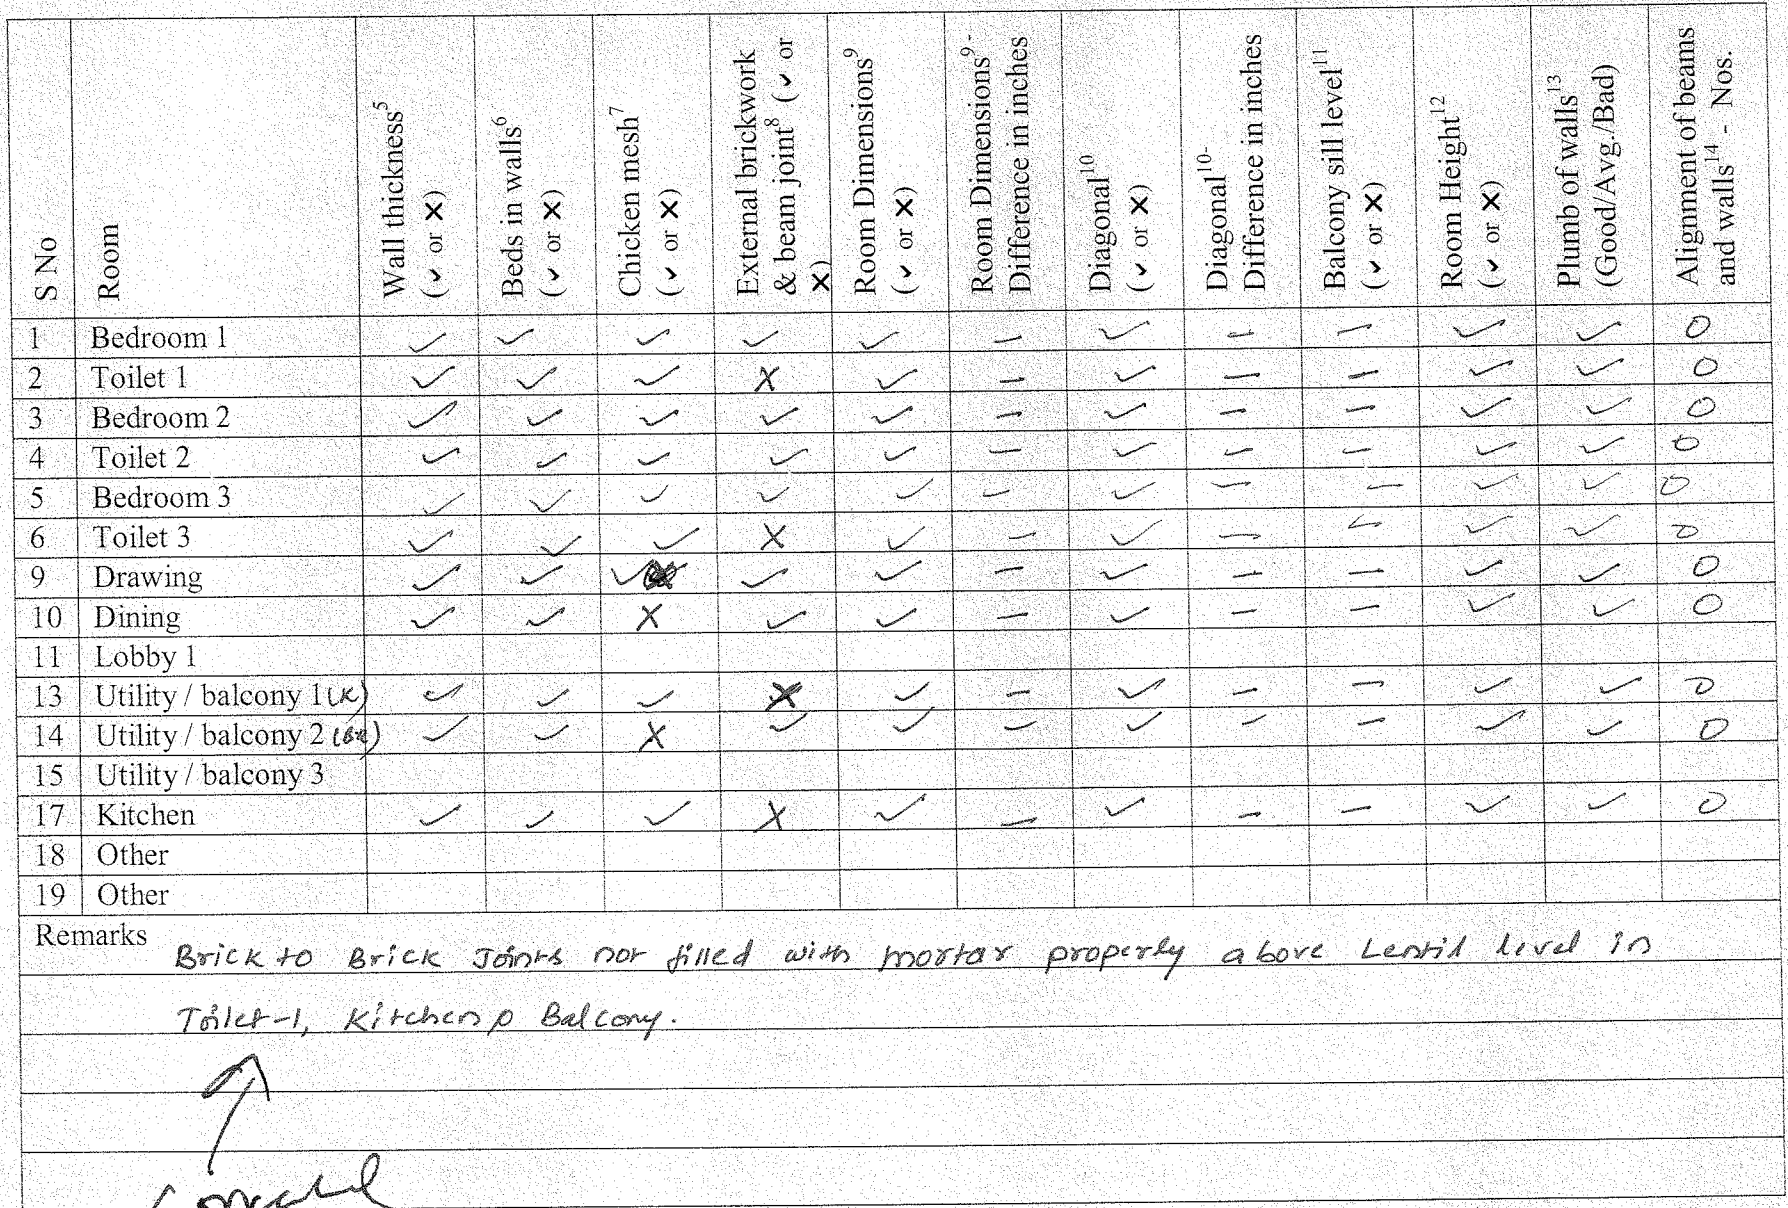 S No | Room | Wall thickness5 (✓ or ✗) | Beds in walls6 (✓ or ✗) | Chicken mesh7 (✓ or ✗) | External brickwork & beam joint8 (✓ or ✗) | Room Dimensions9 (✓ or ✗) | Room Dimensions9 - Difference in inches | Diagonal10 (✓ or ✗) | Diagonal10- Difference in inches | Balcony sill level11 (✓ or ✗) | Room Height12 (✓ or ✗) | Plumb of walls13 (Good/Avg./Bad) | Alignment of beams and walls14 - Nos.
1 | Bedroom 1 | ✓ | ✓ | ✓ | ✓ | ✓ | – | ✓ | – | – | ✓ | ✓ | 0
2 | Toilet 1 | ✓ | ✓ | ✓ | ✗ | ✓ | – | ✓ | – | – | ✓ | ✓ | 0
3 | Bedroom 2 | ✓ | ✓ | ✓ | ✓ | ✓ | – | ✓ | – | – | ✓ | ✓ | 0
4 | Toilet 2 | ✓ | ✓ | ✓ | ✓ | ✓ | – | ✓ | – | – | ✓ | ✓ | 0
5 | Bedroom 3 | ✓ | ✓ | ✓ | ✓ | ✓ | – | ✓ | – | – | ✓ | ✓ | 0
6 | Toilet 3 | ✓ | ✓ | ✓ | ✗ | ✓ | – | ✓ | – | – | ✓ | ✓ | 0
9 | Drawing | ✓ | ✓ | ✓ | ✓ | ✓ | – | ✓ | – | – | ✓ | ✓ | 0
10 | Dining | ✓ | ✓ | ✗ | ✓ | ✓ | – | ✓ | – | – | ✓ | ✓ | 0
11 | Lobby 1
13 | Utility / balcony 1 (K) | ✓ | ✓ | ✓ | ✗ | ✓ | – | ✓ | – | – | ✓ | ✓ | 0
14 | Utility / balcony 2 | ✓ | ✓ | ✗ | ✓ | ✓ | – | ✓ | – | – | ✓ | ✓ | 0
15 | Utility / balcony 3
17 | Kitchen | ✓ | ✓ | ✓ | ✗ | ✓ | – | ✓ | – | – | ✓ | ✓ | 0
18 | Other
19 | Other
Remarks
Brick to Brick Joints not filled with mortar properly above Lentil level in
Toilet-1, Kitchen Balcony.